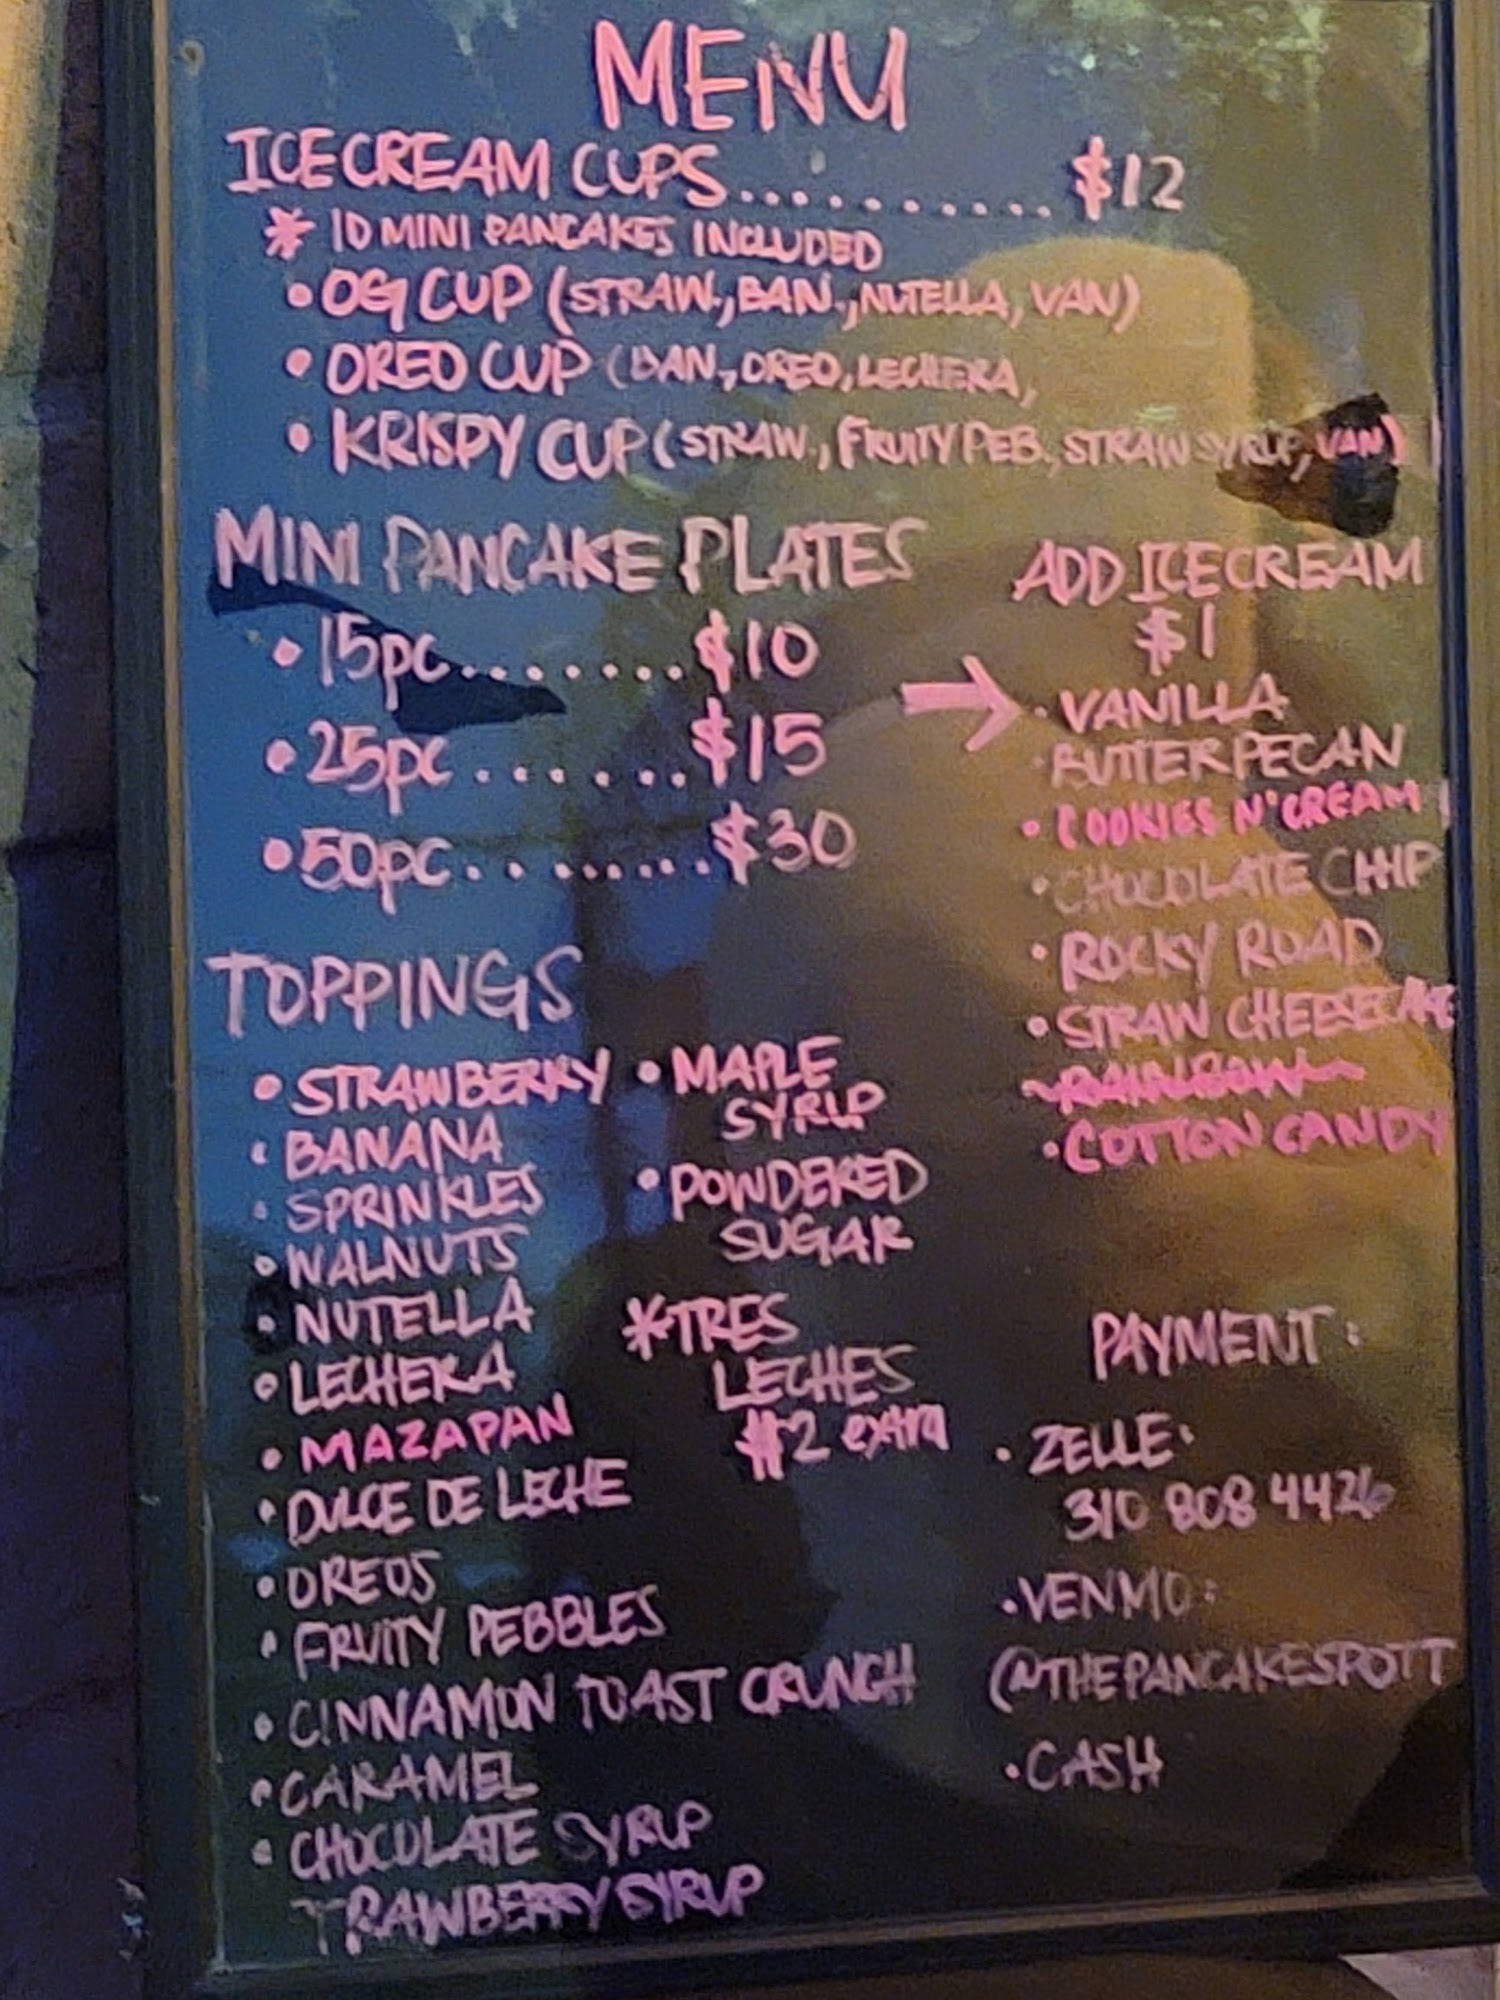 MENU
ICECREAM CUPS........... $12
* 10 MINI PANCAKES INCLUDED
• OG CUP (STRAW., BAN., NUTELLA, VAN)
• OREO CUP (BAN., OREO, LECHERA,
• KRISPY CUP (STRAW., FRUITY PEB., STRAW SYRUP, VAN)
MINI PANCAKE PLATES
• 15pc.......$10
• 25pc.......$15
• 50pc........$30
ADD ICECREAM
$1
→ • VANILLA
• BUTTER PECAN
• COOKIES N' CREAM
• CHOCOLATE CHIP
• ROCKY ROAD
• STRAW CHEESECAKE
RAINBOW
• COTTON CANDY
TOPPINGS
• STRAWBERRY
• BANANA
• SPRINKLES
• WALNUTS
• NUTELLA
• LECHERA
• MAZAPAN
• DULCE DE LECHE
• OREOS
• FRUITY PEBBLES
• CINNAMON TOAST CRUNCH
• CARAMEL
• CHOCOLATE SYRUP
TRAWBERRY SYRUP
• MAPLE
SYRUP
• POWDERED
SUGAR
* TRES
LECHES
$2 extra
PAYMENT:
• ZELLE:
310 808 4426
• VENMO:
@THEPANCAKESPOTT
• CASH